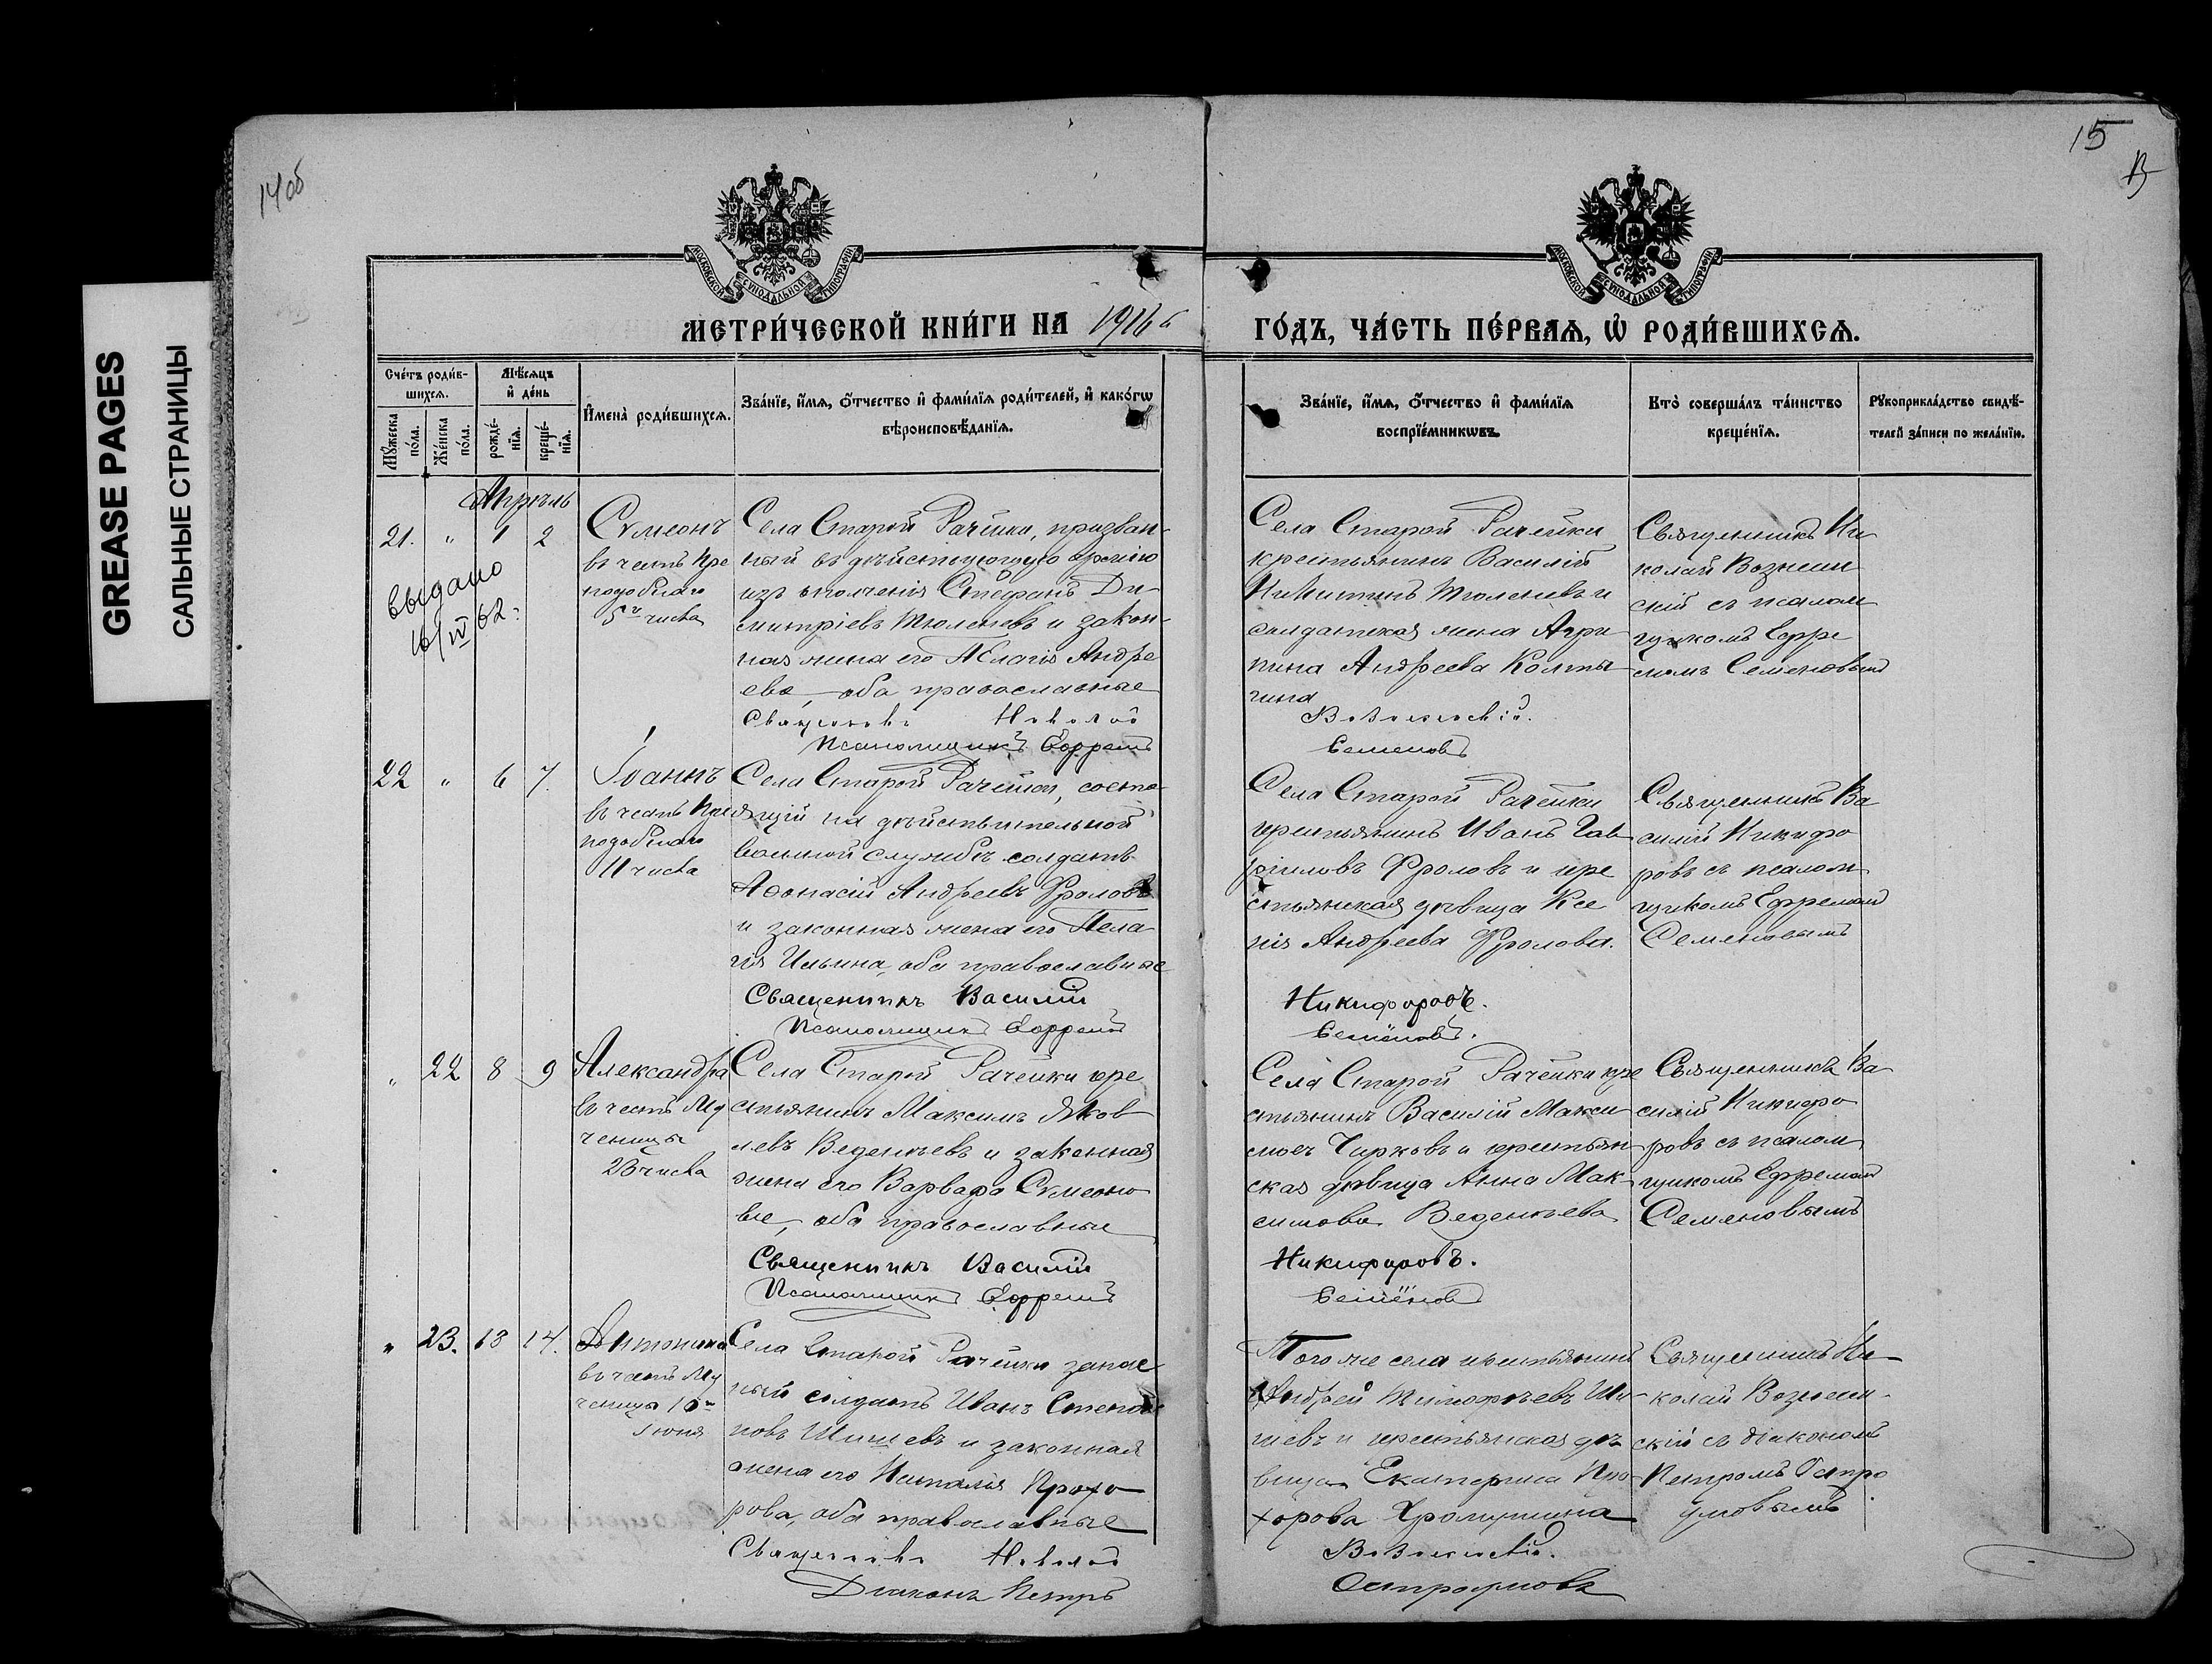 14об
15
GREASE PAGES
САЛЬНЫЕ СТРАНИЦЫ
МОСКОВСКОЙ СУНОДАЛЬНОЙ ТИПОГРАФІИ
МОСКОВСКОЙ СУНОДАЛЬНОЙ ТИПОГРАФІИ
МЕТРИ́ЧЕСКОЙ КНИ́ГИ НА 1916
ГО́ДЪ, ЧА́СТЬ ПЕ́РВАѦ, Ѡ РОДИ́ВШИХСѦ.
Сче́тъ роди́в-
шихсѧ.
Мꙋ́жеска по́ла.
Же́нска по́ла.
Мѣ́сѧцъ
и҆ де́нь
рожде́-
нїѧ.
креще́-
нїѧ.
И҆мена̀ роди́вшихсѧ.
Зва́нїе, и҆́мѧ, ѻ҆́тчество и҆ фамѝлїѧ роди́телей, и҆ како́гѡ
вѣроисповѣ́данїѧ.
Зва́нїе, и҆́мѧ, ѻ҆́тчество и҆ фамѝлїѧ
воспрїе́мникѡвъ.
Кто̀ соверша́лъ та́инство
креще́нїѧ.
Рꙋкоприкла́дство свидѣ́-
телей за́писи по жела́нїю.
Апрѣль
21. " 1 2
выдано
10/IV 62.
Сѵмеонъ
въ честь Пре
подобнаго
5го числа
Села Старой Рачейки, призван-
ный въ дѣйствующую армію
изъ ополченія Стефанъ Ди-
митріевъ Тюленевъ и закон-
ная жена его Пелагія Андре
ева, оба православные
Священникъ Николай
Псаломщикъ Ефремъ
Села Старой Рачейки
крестьянинъ Василій
Никитинъ Тюленевъ и
солдатская жена Агри
пина Андреева Колты
гина
Вознесенскій.
Семеновъ
Священникъ Ни
колай Вознесен
скій съ псалом
щикомъ Ефре
момъ Семеновымъ
22 " 6 7.
Іоаннъ
въ честь Пре
подобнаго
11 числа
Села Старой Рачейки, состо
ящій на дѣйствительной
военной службѣ солдатъ
Аѳонасій Андреевъ Фроловъ
и законная жена его Пела
гія Ильина, оба православные
Священникъ Василій
Псаломщикъ Ефремъ
Села Старой Рачейки
крестьянинъ Иванъ Гав
риловъ Фроловъ и кре
стьянская дѣвица Ксе
нія Андреева Фролова.
Никифоровъ.
Семёновъ.
Священникъ Ва
силій Никифо
ровъ съ псалом
щикомъ Ефремомъ
Семеновымъ
" 22 8 9
Александра
въ честь Му
ченицы
23 числа
Села Старой Рачейки кре
стьянинъ Максимъ Яков
левъ Веденѣевъ и законная
жена его Варвара Сѵмеоно
ва, оба православные
Священникъ Василій
Псаломщикъ Ефремъ
Села Старой Рачейки кре
стьянинъ Василій Макси
мовъ Чирковъ и крестьян
ская дѣвица Анна Мак-
симова Веденѣева
Никифоровъ.
Семёновъ
Священникъ Ва-
силій Никифо
ровъ съ псалом
щикомъ Ефремомъ
Семеновымъ
" 23. 13 14.
Антонина
въ честь Му
ченицы 10го
Іюня
Села Старой Рачейки запас
ный солдатъ Иванъ Степа
новъ Шишевъ и законная
жена его Наталія Прохо
рова, оба православные
Священникъ Николай
Діаконъ Петръ
Того же села крестьянинъ
Андрей Тимофѣевъ Ши-
шевъ и крестьянская дѣ
вица Екатерина Про-
хорова
Вознесенскій.
Остроумовъ
Священникъ Ни-
колай Вознесен-
скій съ діакономъ
Петромъ Остро
умовымъ